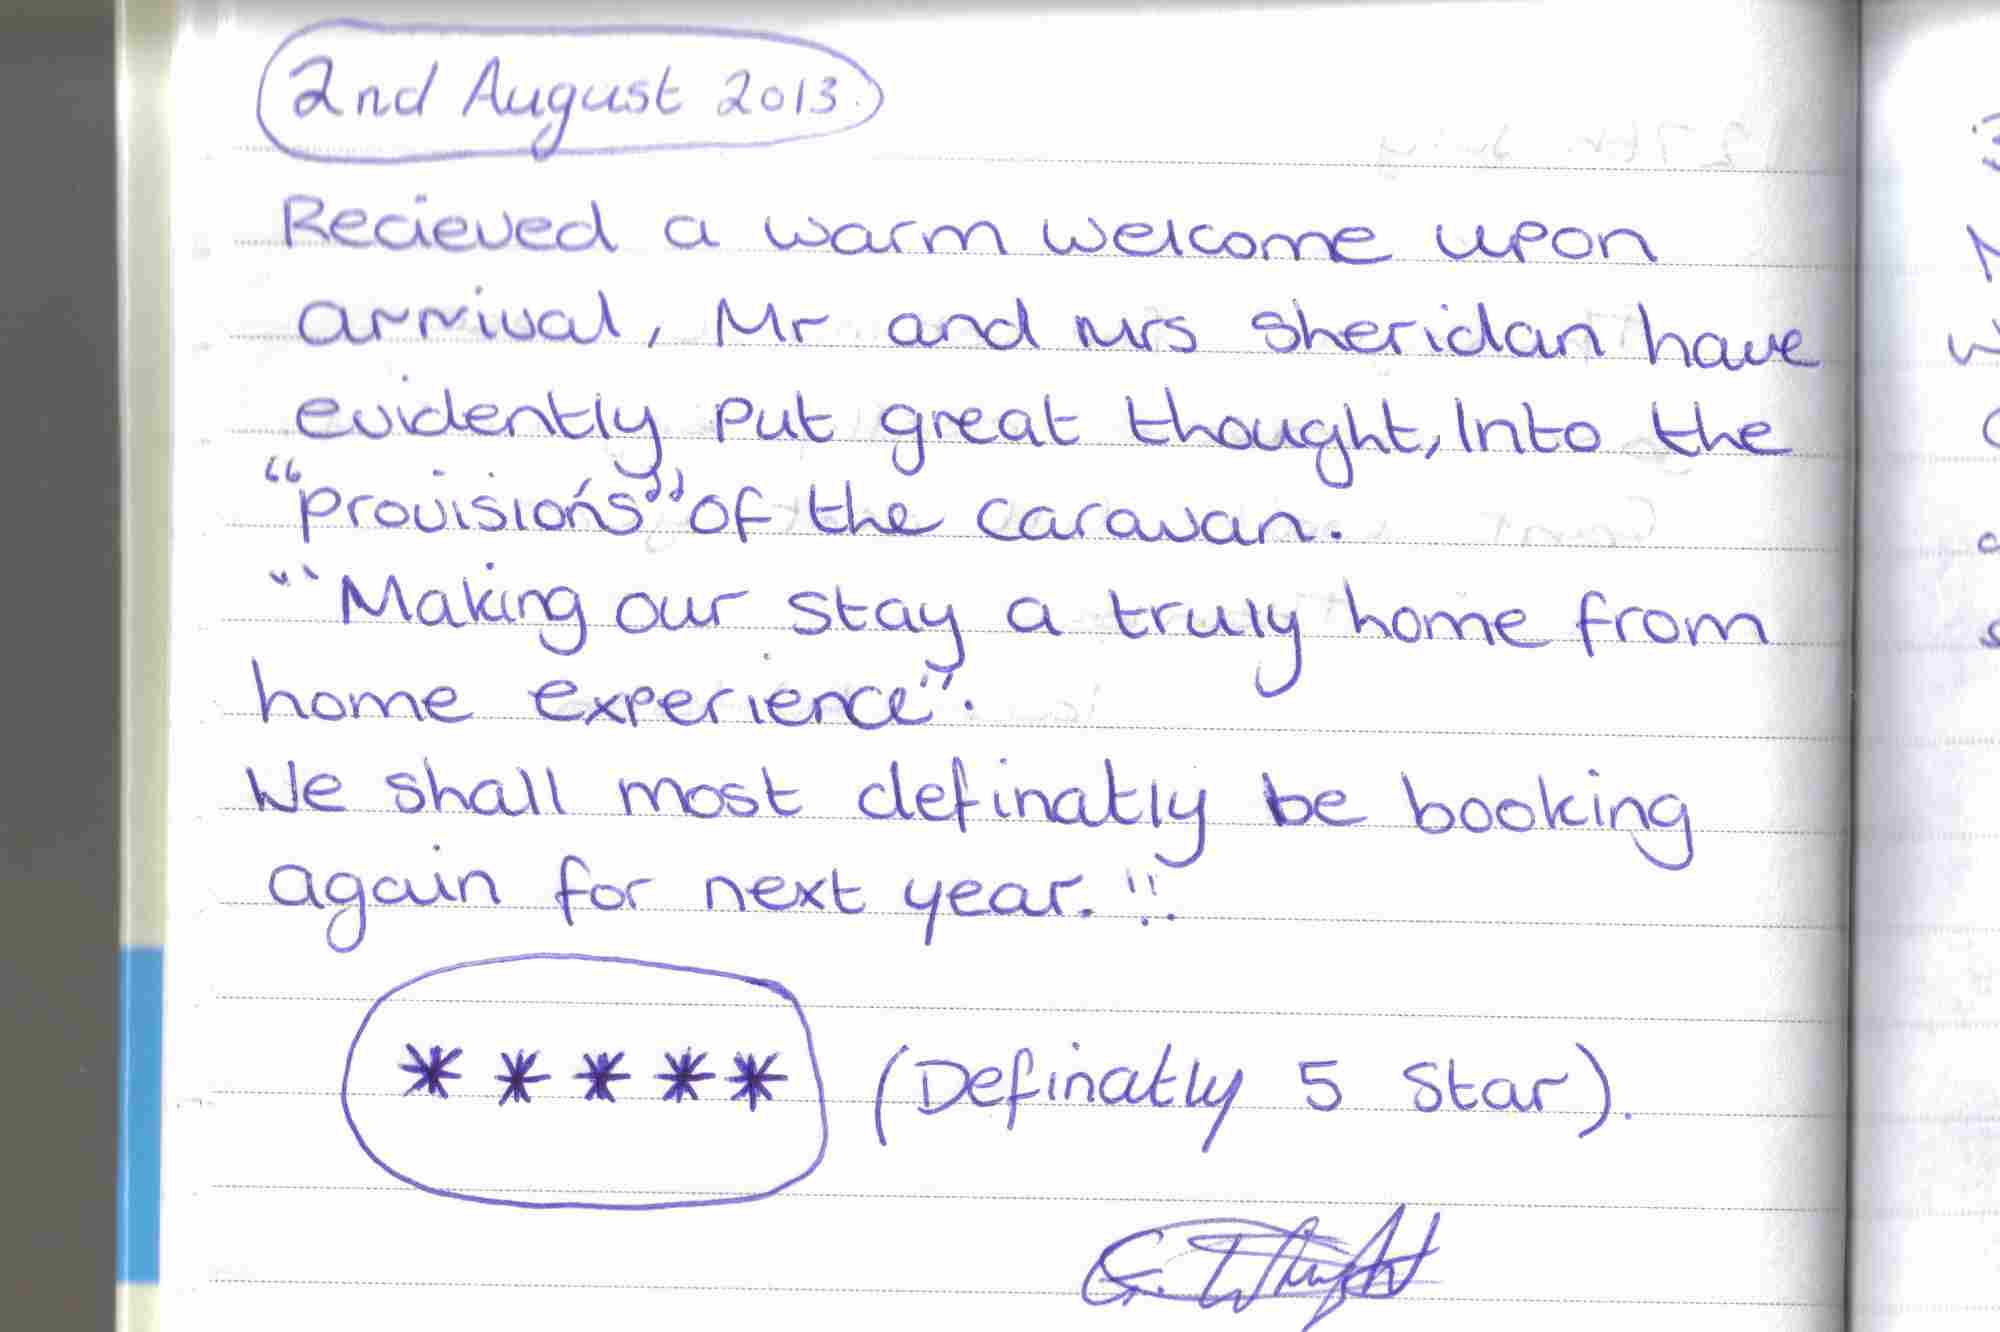 2nd August 2013.
Recieved a warm welcome upon
arrival, Mr and Mrs Sheridan have
evidently put great thought, Into the
"provisions" of the caravan.
"Making our stay a truly home from
home experience".
We shall most definatly be booking
again for next year. !!
* * * * * (Definatly 5 Star).